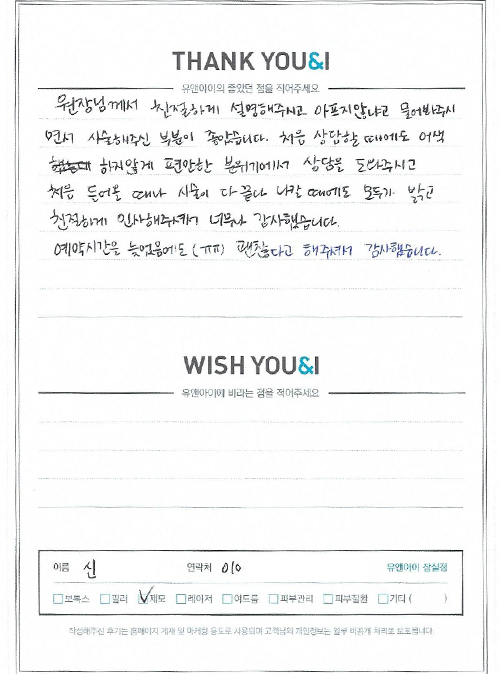 THANK YOU&I
유앤아이의 좋았던 점을 적어주세요
원장님께서 친절하게 설명해주시고 아프지않냐고 물어봐주시
면서 시술해주신 부분이 좋았습니다. 처음 상담할 때에도 어색
하지않게 편안한 분위기에서 상담을 도와주시고
처음 들어올 때나 시술이 다 끝나 나갈 때에도 모두가 밝고
친절하게 인사해주셔서 너무나 감사했습니다.
예약시간을 늦었음에도 (ㅠㅠ) 괜찮다고 해주셔서 감사했습니다.
WISH YOU&I
유앤아이에 바라는 점을 적어주세요
이름 신 연락처 010 유앤아이 잠실점
보톡스 필러 제모 레이저 여드름 피부관리 피부질환 기타 ( )
작성해주신 후기는 홈페이지 게재 및 마케팅 용도로 사용되며 고객님의 개인정보는 일부 비공개 처리로 보호됩니다.